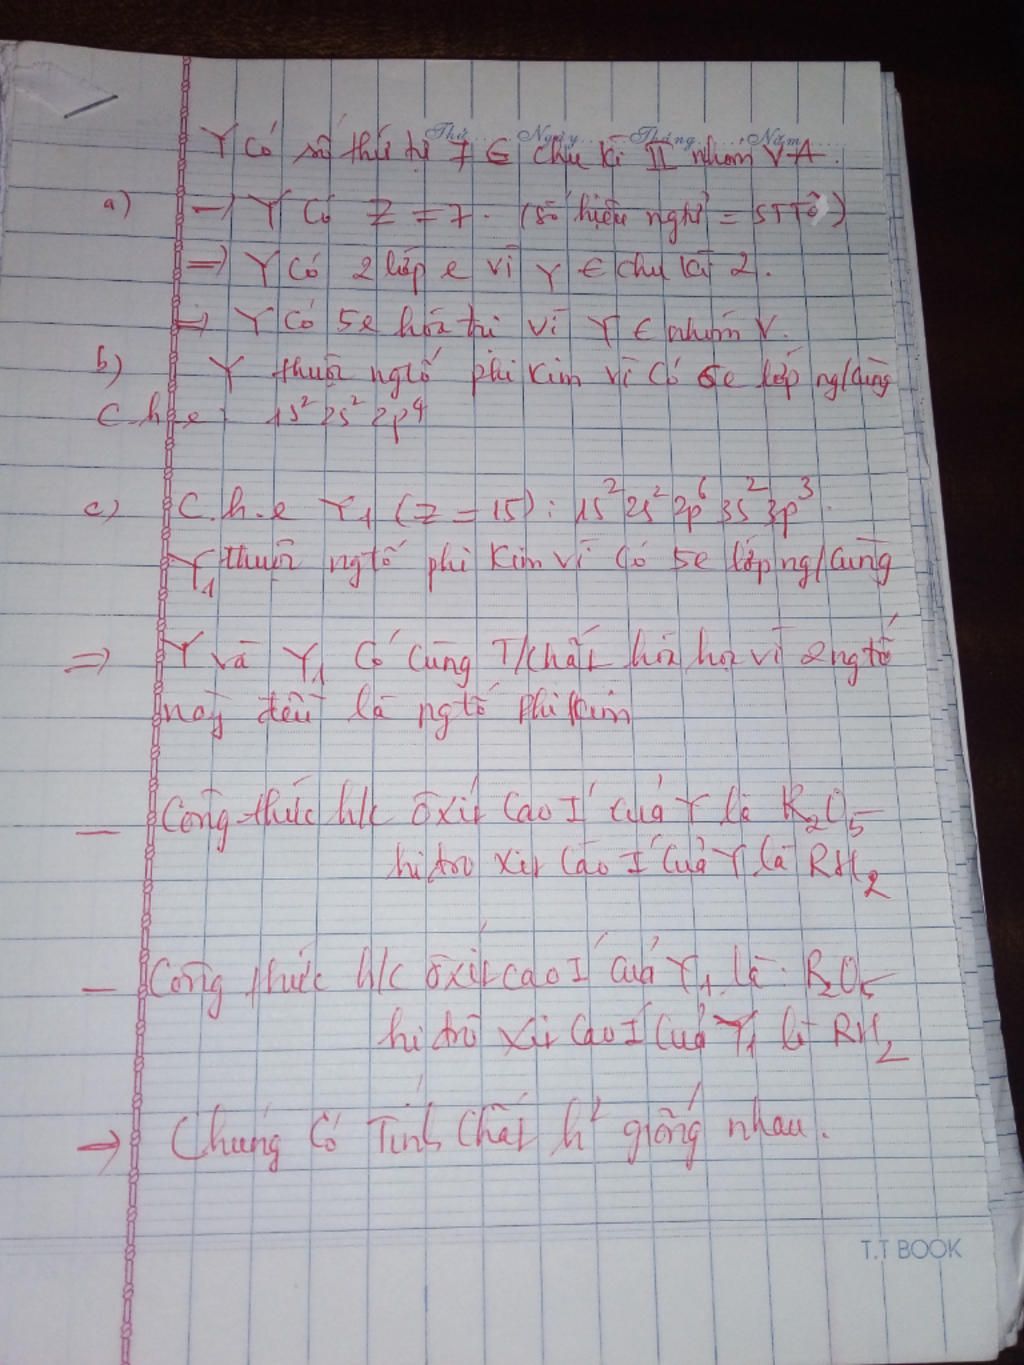 Thứ Ngày Tháng Năm
Y có số thứ tự 7 ∈ chu kì II nhóm V A.
a) → Y có Z = 7. (số hiệu ngtử = STTô)
→ Y có 2 lớp e vì Y ∈ chu kì 2.
→ Y có 5e hóa trị vì Y ∈ nhóm V.
b) Y thuộc ngtố phi kim vì có 5e lớp ng/cùng
C.h.e: 1s² 2s² 2p⁴
c) C.h.e Y₁ (Z = 15): 1s² 2s² 2p⁶ 3s² 3p³.
Y₁ thuộc ngtố phi kim vì có 5e lớp ng/cùng
⇒ Y và Y₁ có cùng T/chất hóa học vì 2 ngtố
này đều là ngtố phi kim
— Công thức h/c ôxit cao I' của Y là R₂O₅
hiđrô xit cao I' của Y là RH₂
— Công thức h/c ôxit cao I' của Y₁ là: R₂O₅
hiđrô xit cao I' của Y₁ là RH₂
→ Chúng có tính chất h² giống nhau.
T.T BOOK